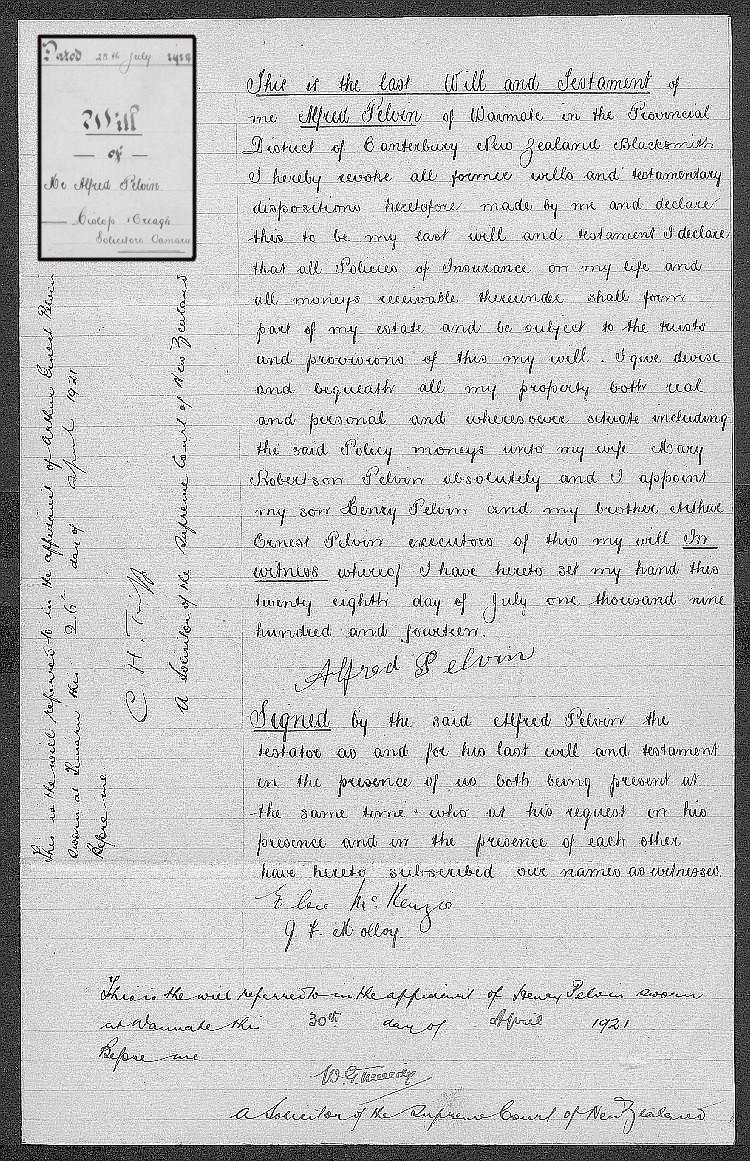 Dated 28th July 1914
Will
— of —
Mr Alfred Pelvin
Creagh
Solicitors Oamaru
This is the last Will and Testament of
me Alfred Pelvin of Waimate in the Provincial
District of Canterbury New Zealand Blacksmith
I hereby revoke all former wills and testamentary
dispositions heretofore made by me and declare
this to be my last will and testament I declare
that all Policies of Insurance on my life and
all moneys receivable thereunder shall form
part of my estate and be subject to the trusts
and provisions of this my will. I give devise
and bequeath all my property both real
and personal and wheresoever situate including
the said Policy moneys unto my wife Mary
Robertson Pelvin absolutely and I appoint
my son Henry Pelvin and my brother Arthur
Ernest Pelvin executors of this my will In
witness whereof I have hereto set my hand this
twenty eighth day of July one thousand nine
hundred and fourteen.
Alfred Pelvin
Signed by the said Alfred Pelvin the
testator as and for his last will and testament
in the presence of us both being present at
the same time who at his request in his
presence and in the presence of each other
have hereto subscribed our names as witnesses.
Elsie McKenzie
J F Molloy
This is the will referred to in the affidavit of Arthur Ernest Pelvin
sworn at Oamaru this 26th day of April 1921
Before me
C. H.
A Solicitor of the Supreme Court of New Zealand
This is the will referred to in the affidavit of Henry Pelvin sworn
at Waimate this 30th day of April 1921
Before me
A Solicitor of the Supreme Court of New Zealand